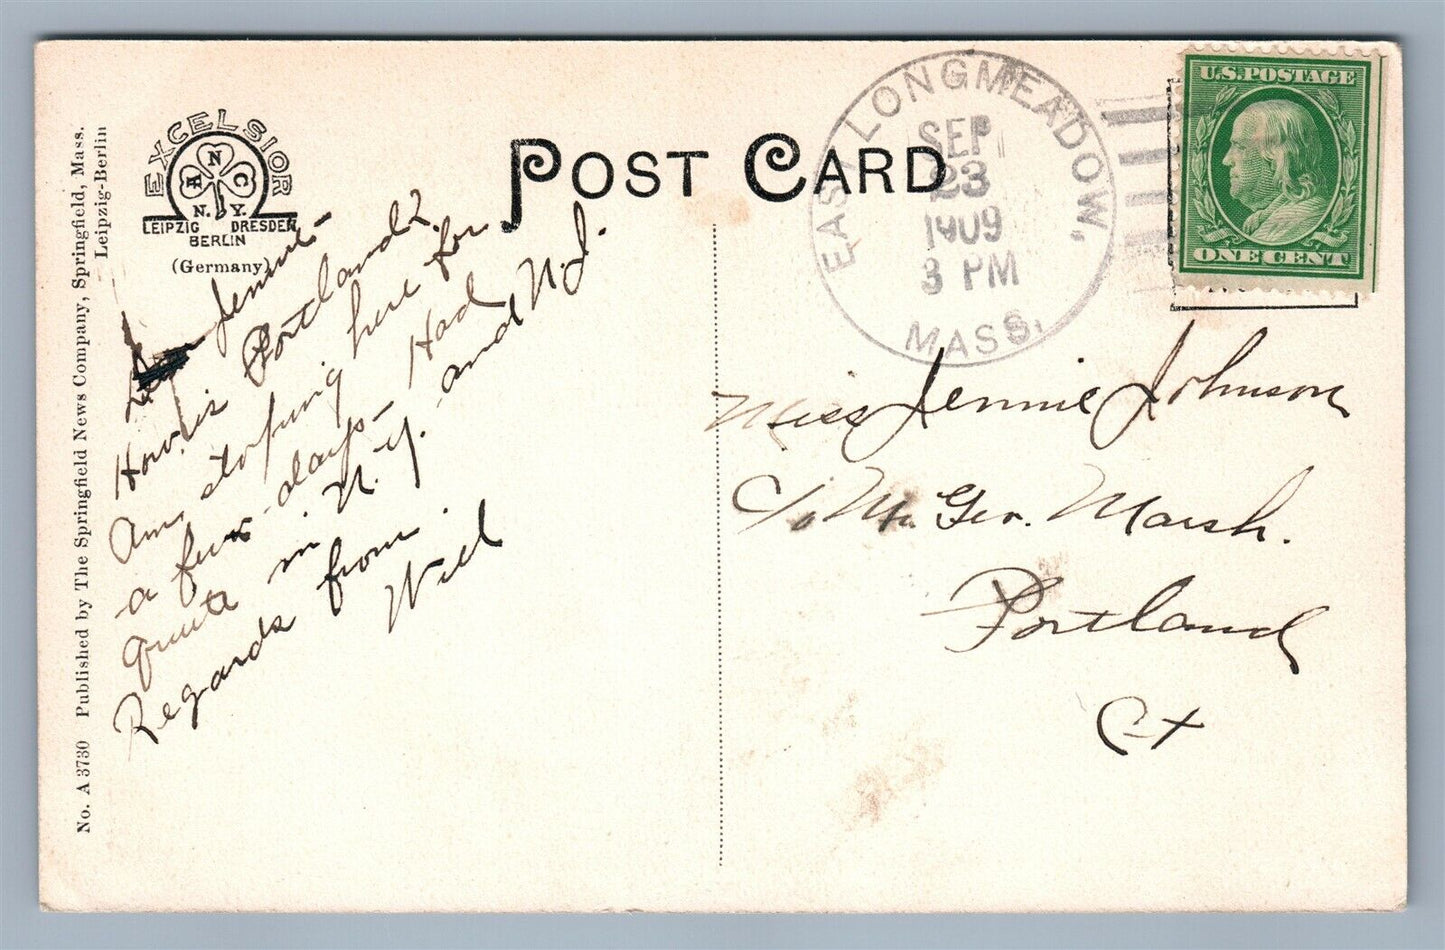 No. A 3730 Published by The Springfield News Company, Springfield, Mass.
Leipzig-Berlin
EXCELSIOR
A N C
N. Y.
LEIPZIG DRESDEN
BERLIN
(Germany)
POST CARD
EAST LONGMEADOW,
SEP
23
1909
3 PM
MASS.
U.S. POSTAGE
ONE CENT
Jennie-
How is Portland?
Am stopping here for
a few days- Had
quite in N.Y. and N.J.
Regards from
Will
Miss Jennie Johnson
c/o Mr. Geo. Marsh.
Portland
Ct